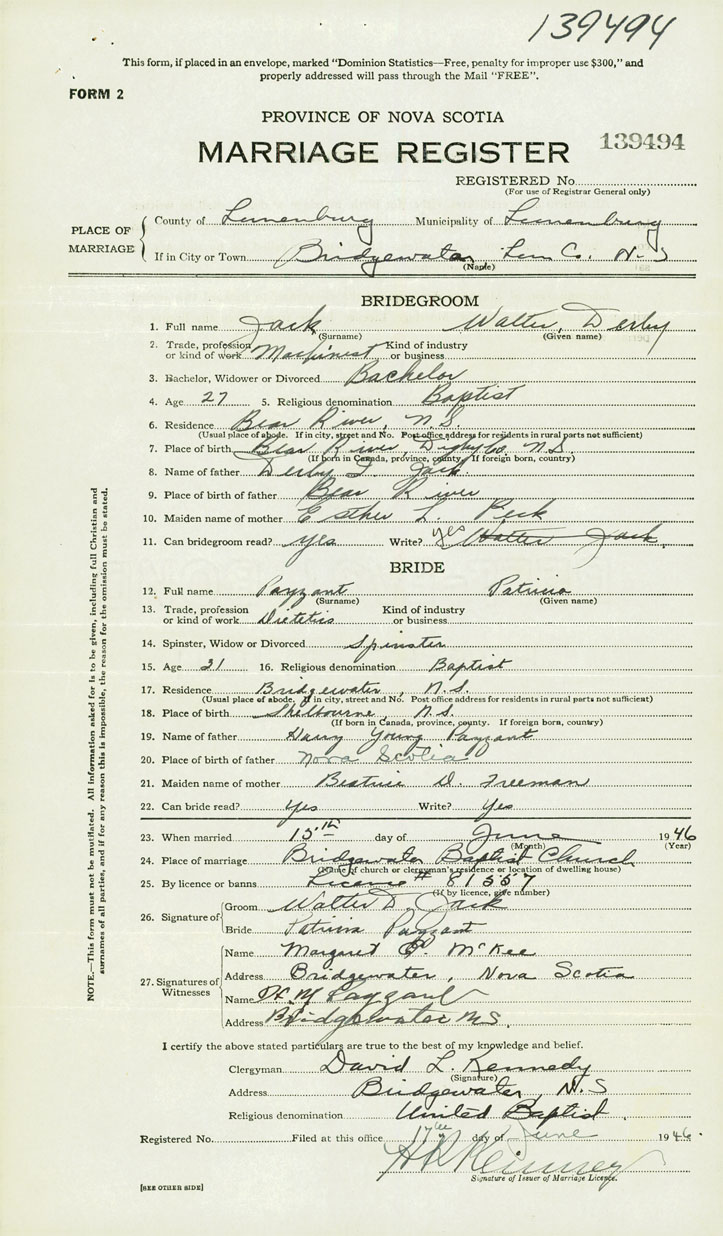 139494
This form, if placed in an envelope, marked "Dominion Statistics—Free, penalty for improper use $300," and
properly addressed will pass through the Mail "FREE".
FORM 2
PROVINCE OF NOVA SCOTIA
MARRIAGE REGISTER 139494
REGISTERED No.
(For use of Registrar General only)
PLACE OF MARRIAGE
County of Lunenburg Municipality of Lunenburg
If in City or Town Bridgewater, Lun Co. N.S
(Name)
BRIDEGROOM
1. Full name Jack Walter Derby
(Surname) (Given name)
2. Trade, profession or kind of work Machinest Kind of industry or business
3. Bachelor, Widower or Divorced Bachelor
4. Age 27 5. Religious denomination Baptist
6. Residence Bear River, N.S.
(Usual place of abode. If in city, street and No. Post office address for residents in rural parts not sufficient)
7. Place of birth Bear River, Digby Co. N.S.
(If born in Canada, province, county. If foreign born, country)
8. Name of father Derby I. Jack
9. Place of father Bear River
10. Maiden name of mother Esther L. Peck
11. Can bridegroom read? yes Write? yes Walter Jack
BRIDE
12. Full name Payzant Patricia
(Surname) (Given name)
13. Trade, profession or kind of work Dietetis Kind of industry or business
14. Spinster, Widow or Divorced Spinster
15. Age 21 16. Religious denomination Baptist
17. Residence Bridgewater, N.S.
(Usual place of abode. If in city, street and No. Post office address for residents in rural parts not sufficient)
18. Place of birth Shelbourne, N.S.
(If born in Canada, province, county. If foreign born, country)
19. Name of father Harry Young Payzant
20. Place of birth of father Nova Scotia
21. Maiden name of mother Beatrice D. Freeman
22. Can bride read? Yes Write? Yes
23. When married 15th day of June 1946
(Month) (Year)
24. Place of marriage Bridgewater Baptist Church
(Name of church or clergyman's residence or location of dwelling house)
25. By licence or banns License # 81557
(If by licence, give number)
26. Signature of
Groom Walter D. Jack
Bride Patricia Payzant
27. Signatures of Witnesses
Name Margaret McKee
Address Bridgewater, Nova Scotia
Name H. M Payzant
Address Bridgewater N.S.
I certify the above stated particulars are true to the best of my knowledge and belief.
Clergyman David L. Kennedy
(Signature)
Address Bridgewater, N.S
Religious denomination United Baptist
Registered No. Filed at this office 17th day of June 1946.
Signature of Issuer of Marriage Licence.
[SEE OTHER SIDE]
NOTE.—This form must not be mutilated. All information asked for is to be given, including full Christian and
surnames of all parties, and if for any reason this is impossible, the reason for the omission must be stated.